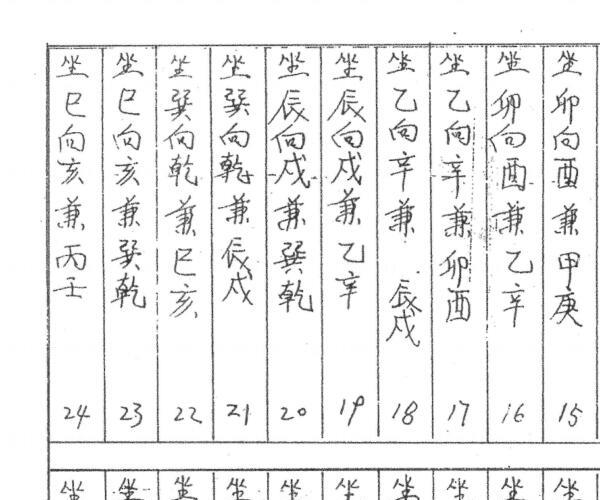 坐卯向酉兼甲庚 15
坐卯向酉兼乙辛 16
坐乙向辛兼卯酉 17
坐乙向辛兼辰戍 18
坐辰向戍兼乙辛 19
坐辰向戍兼巽乾 20
坐巽向乾兼辰戍 21
坐巽向乾兼巳亥 22
坐巳向亥兼巽乾 23
坐巳向亥兼丙壬 24
坐
坐
坐
坐
坐
坐
坐
坐
坐
坐